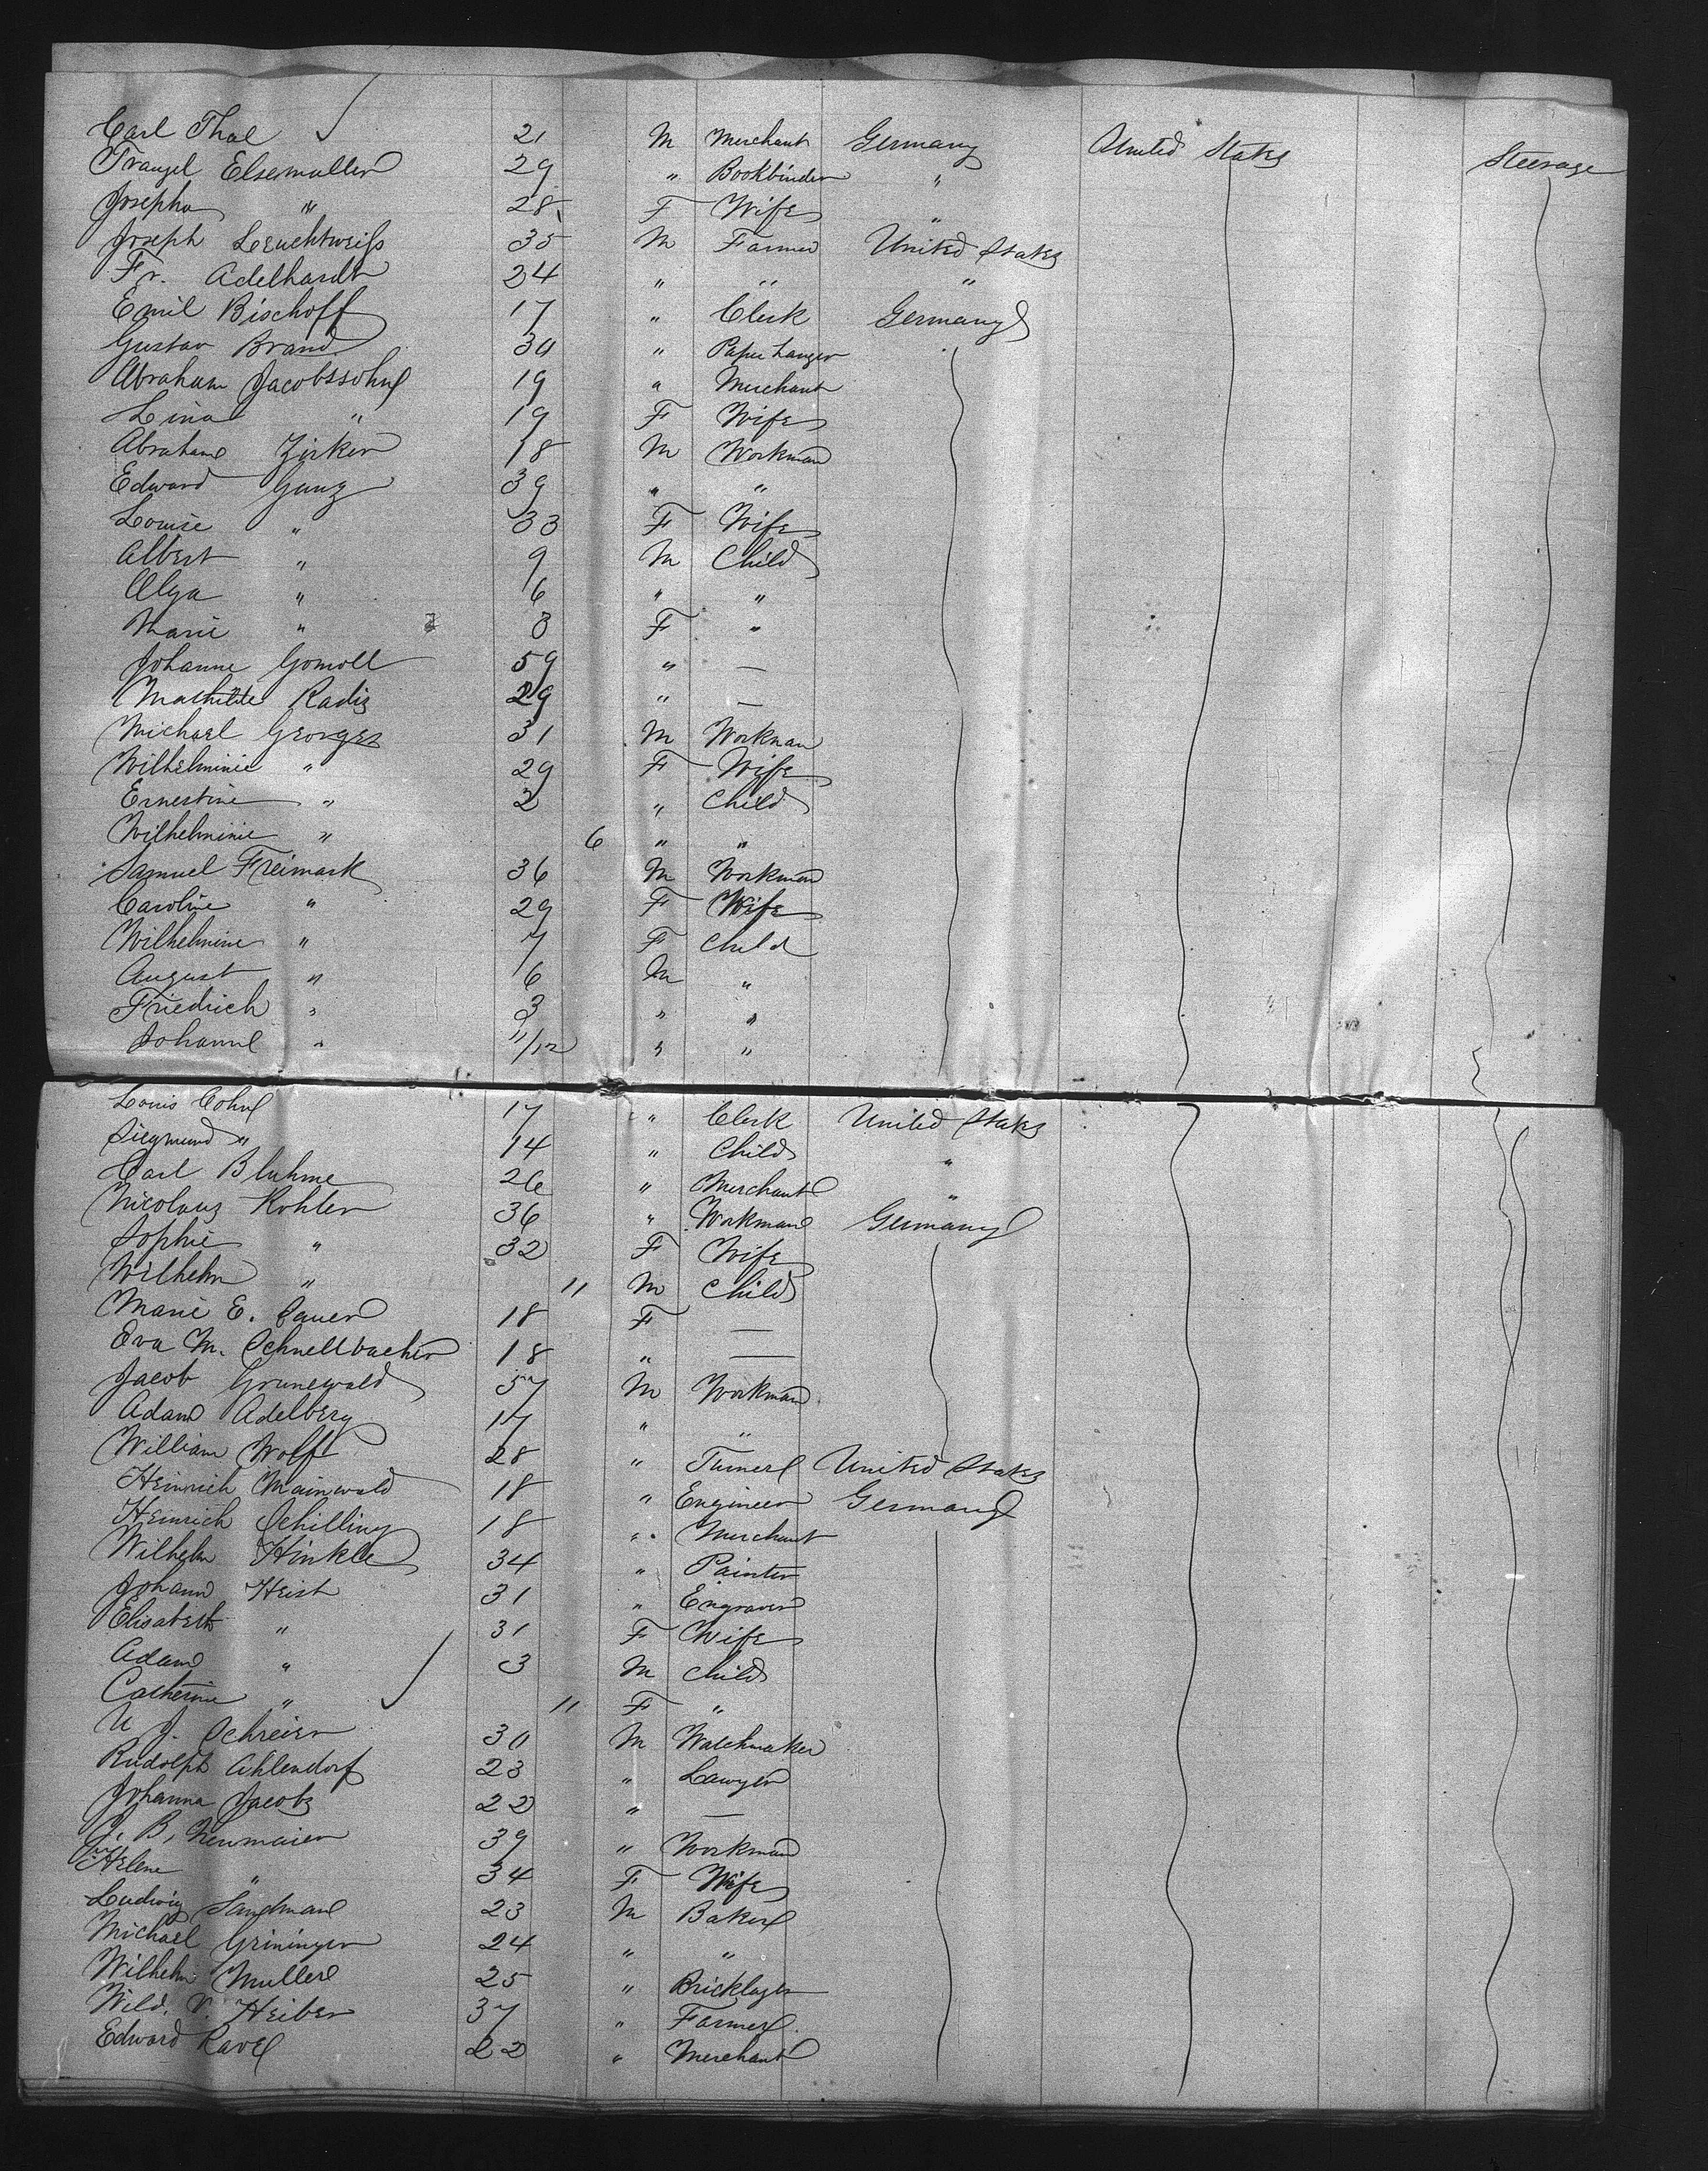 Carl Thal 21 M Merchant Germany United States Steerage
Traugel Elsemuller 29 " Bookbinder "
Josepha " 28 F Wife "
Joseph Leuchtweiss 35 M Farmer United States
Fr. Adelhardt 24 " " "
Emil Bischoff 17 " Clerk Germany
Gustav Brand 30 " Paper hanger
Abraham Jacobssohn 19 " Merchant
Lina " 19 F Wife
Abraham Zirker 18 M Workman
Edward Ganz 39 " "
Louise " 33 F Wife
Albert " 9 M Child
Olga " 6 " "
Marie " 3 F "
Johanne Gomoll 59 " —
Mathilde Radiz 29 " —
Michael Georges 31 M Workman
Wilhelminie " 29 F Wife
Ernestine " 2 " Child
Wilhelminie " 6 " "
Samuel Freimark 36 M Workman
Caroline " 29 F Wife
Wilhelmine " 7 F Child
August " 6 M "
Friedrich " 3 " "
Johann " 11/12 " "
Louis Cohn 17 " Clerk United States
Siegmund " 14 " Child "
Carl Bluhme 26 " Merchant "
Nicolaus Kohler 36 " Workman Germany
Sophie " 32 F Wife
Wilhelm " 11 M Child
Marie E. Sauer 18 F —
Eva M. Schnellbacher 18 " —
Jacob Grunewald 57 M Workman
Adam Adelberg 17 " "
William Wolff 28 " Turner United States
Heinrich Mainwald 18 " Engineer Germany
Heinrich Schilling 18 " Merchant
Wilhelm Hinkle 34 " Painter
Johann Heist 31 " Engraver
Elisabeth " 31 F Wife
Adam " 3 M Child
Catherine " 11 F "
J. Schreier 30 M Watchmaker
Rudolph Ahlendorf 23 " Lawyer
Johanna Jacobs 22 " —
J. B. Neumaier 39 " Workman
Helene " 34 F Wife
Ludwig Sandman 23 M Baker
Michael Grininger 24 " "
Wilhelm Muller 25 " Bricklayer
Wild. V. Heiber 37 " Farmer
Edward Ravel 22 " Merchant